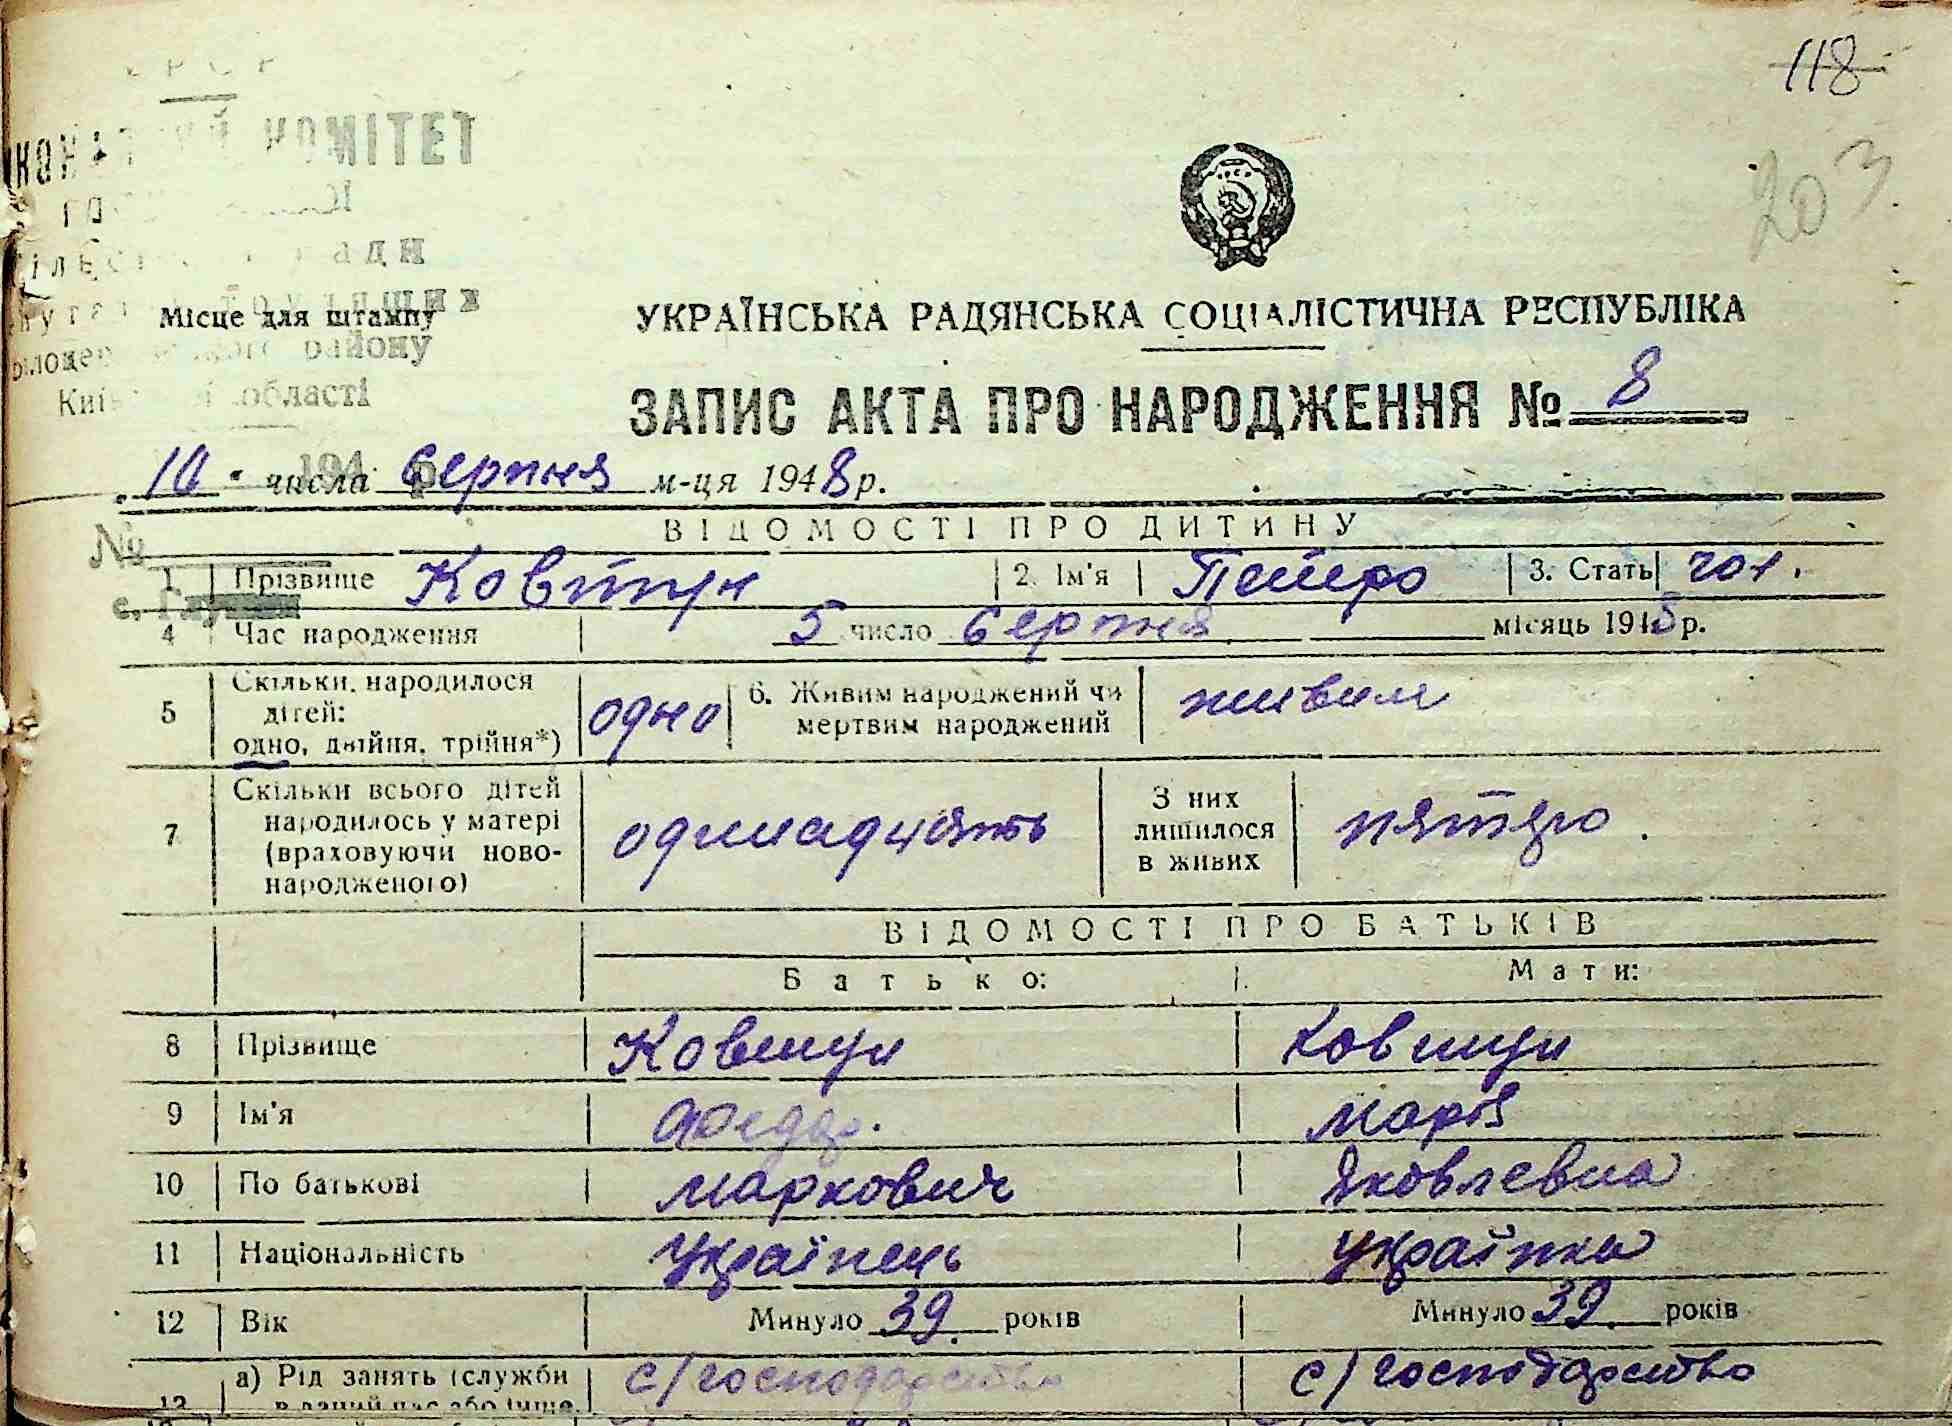 118
203
КОМІТЕТ
Місце для штампу
району
області
УКРАЇНСЬКА РАДЯНСЬКА СОЦІАЛІСТИЧНА РЕСПУБЛІКА
ЗАПИС АКТА ПРО НАРОДЖЕННЯ № 8
10 числа Серпня м-ця 1948 р.
ВІДОМОСТІ ПРО ДИТИНУ
№
1 Прізвище Ковтун 2. Ім'я Петро 3. Стать чол.
4 Час народження 5 число Серпня місяць 1948 р.
5 Скільки народилося дітей: одно, двійня, трійня*) одно 6. Живим народжений чи мертвим народжений живим
7 Скільки всього дітей народилось у матері (враховуючи ново-народженого) одинадцять З них лишилося в живих пятеро.
ВІДОМОСТІ ПРО БАТЬКІВ
Батько: Мати:
8 Прізвище Ковтун Ковтун
9 Ім'я Федор. Марія
10 По батькові Маркович Яковлевна
11 Національність Українець Українка
12 Вік Минуло 39. років Минуло 39. років
13 а) Рід занять (служби с/господарство с/господарство
в даний час або інше